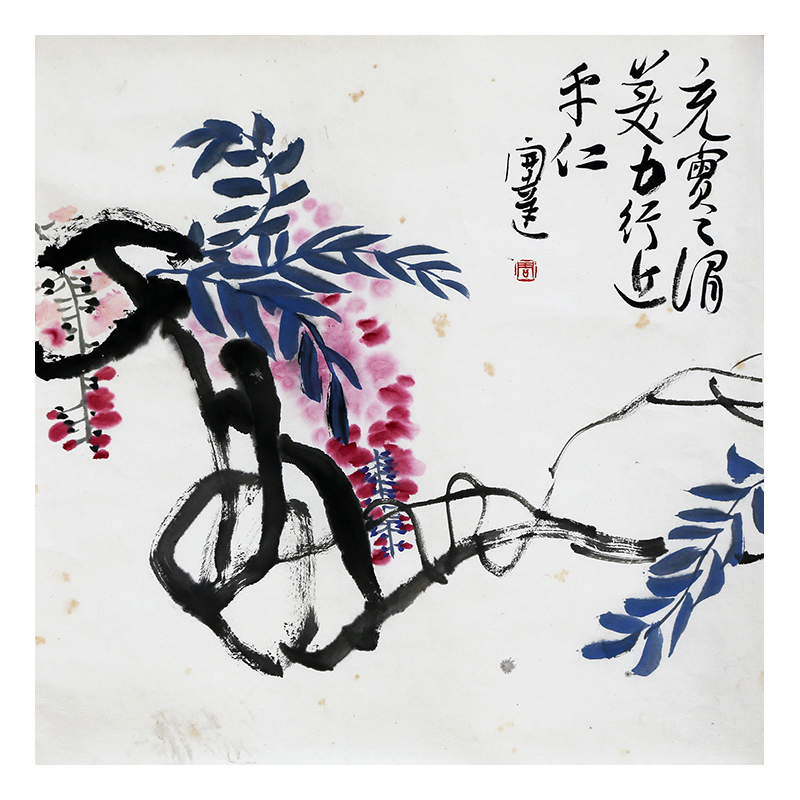 充實之謂
美力行近
乎仁
周